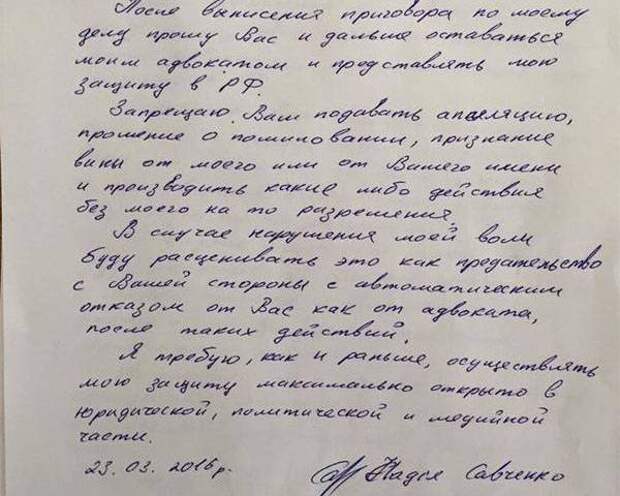 После вынисения приговора по моему
делу прошу Вас и дальше оставаться
моим адвокатом и представлять мою
защиту в РФ.
Запрещаю Вам подавать апеляцию,
прошение о помиловании, признание
вины от моего или от Вашего имени
и производить какие либо действия
без моего на то разрешения.
В случае нарушения моей воли
буду расценивать это как предательство
с Вашей стороны с автоматическим
отказом от Вас как от адвоката,
после таких действий.
Я требую, как и раньше, осуществлять
мою защиту максимально открыто в
юридической, политической и медийной
части.
23.03.2016 г. Надія Савченко